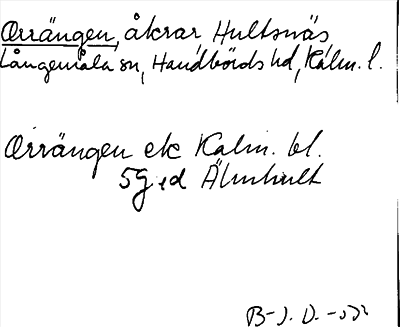 Orrängen, åkrar Hultsnäs
Långemåla sn, Handbörds hd, Kalm. l.
Orrängen ek Kalm. bl.
5G ed Älmhult
B-J. D.